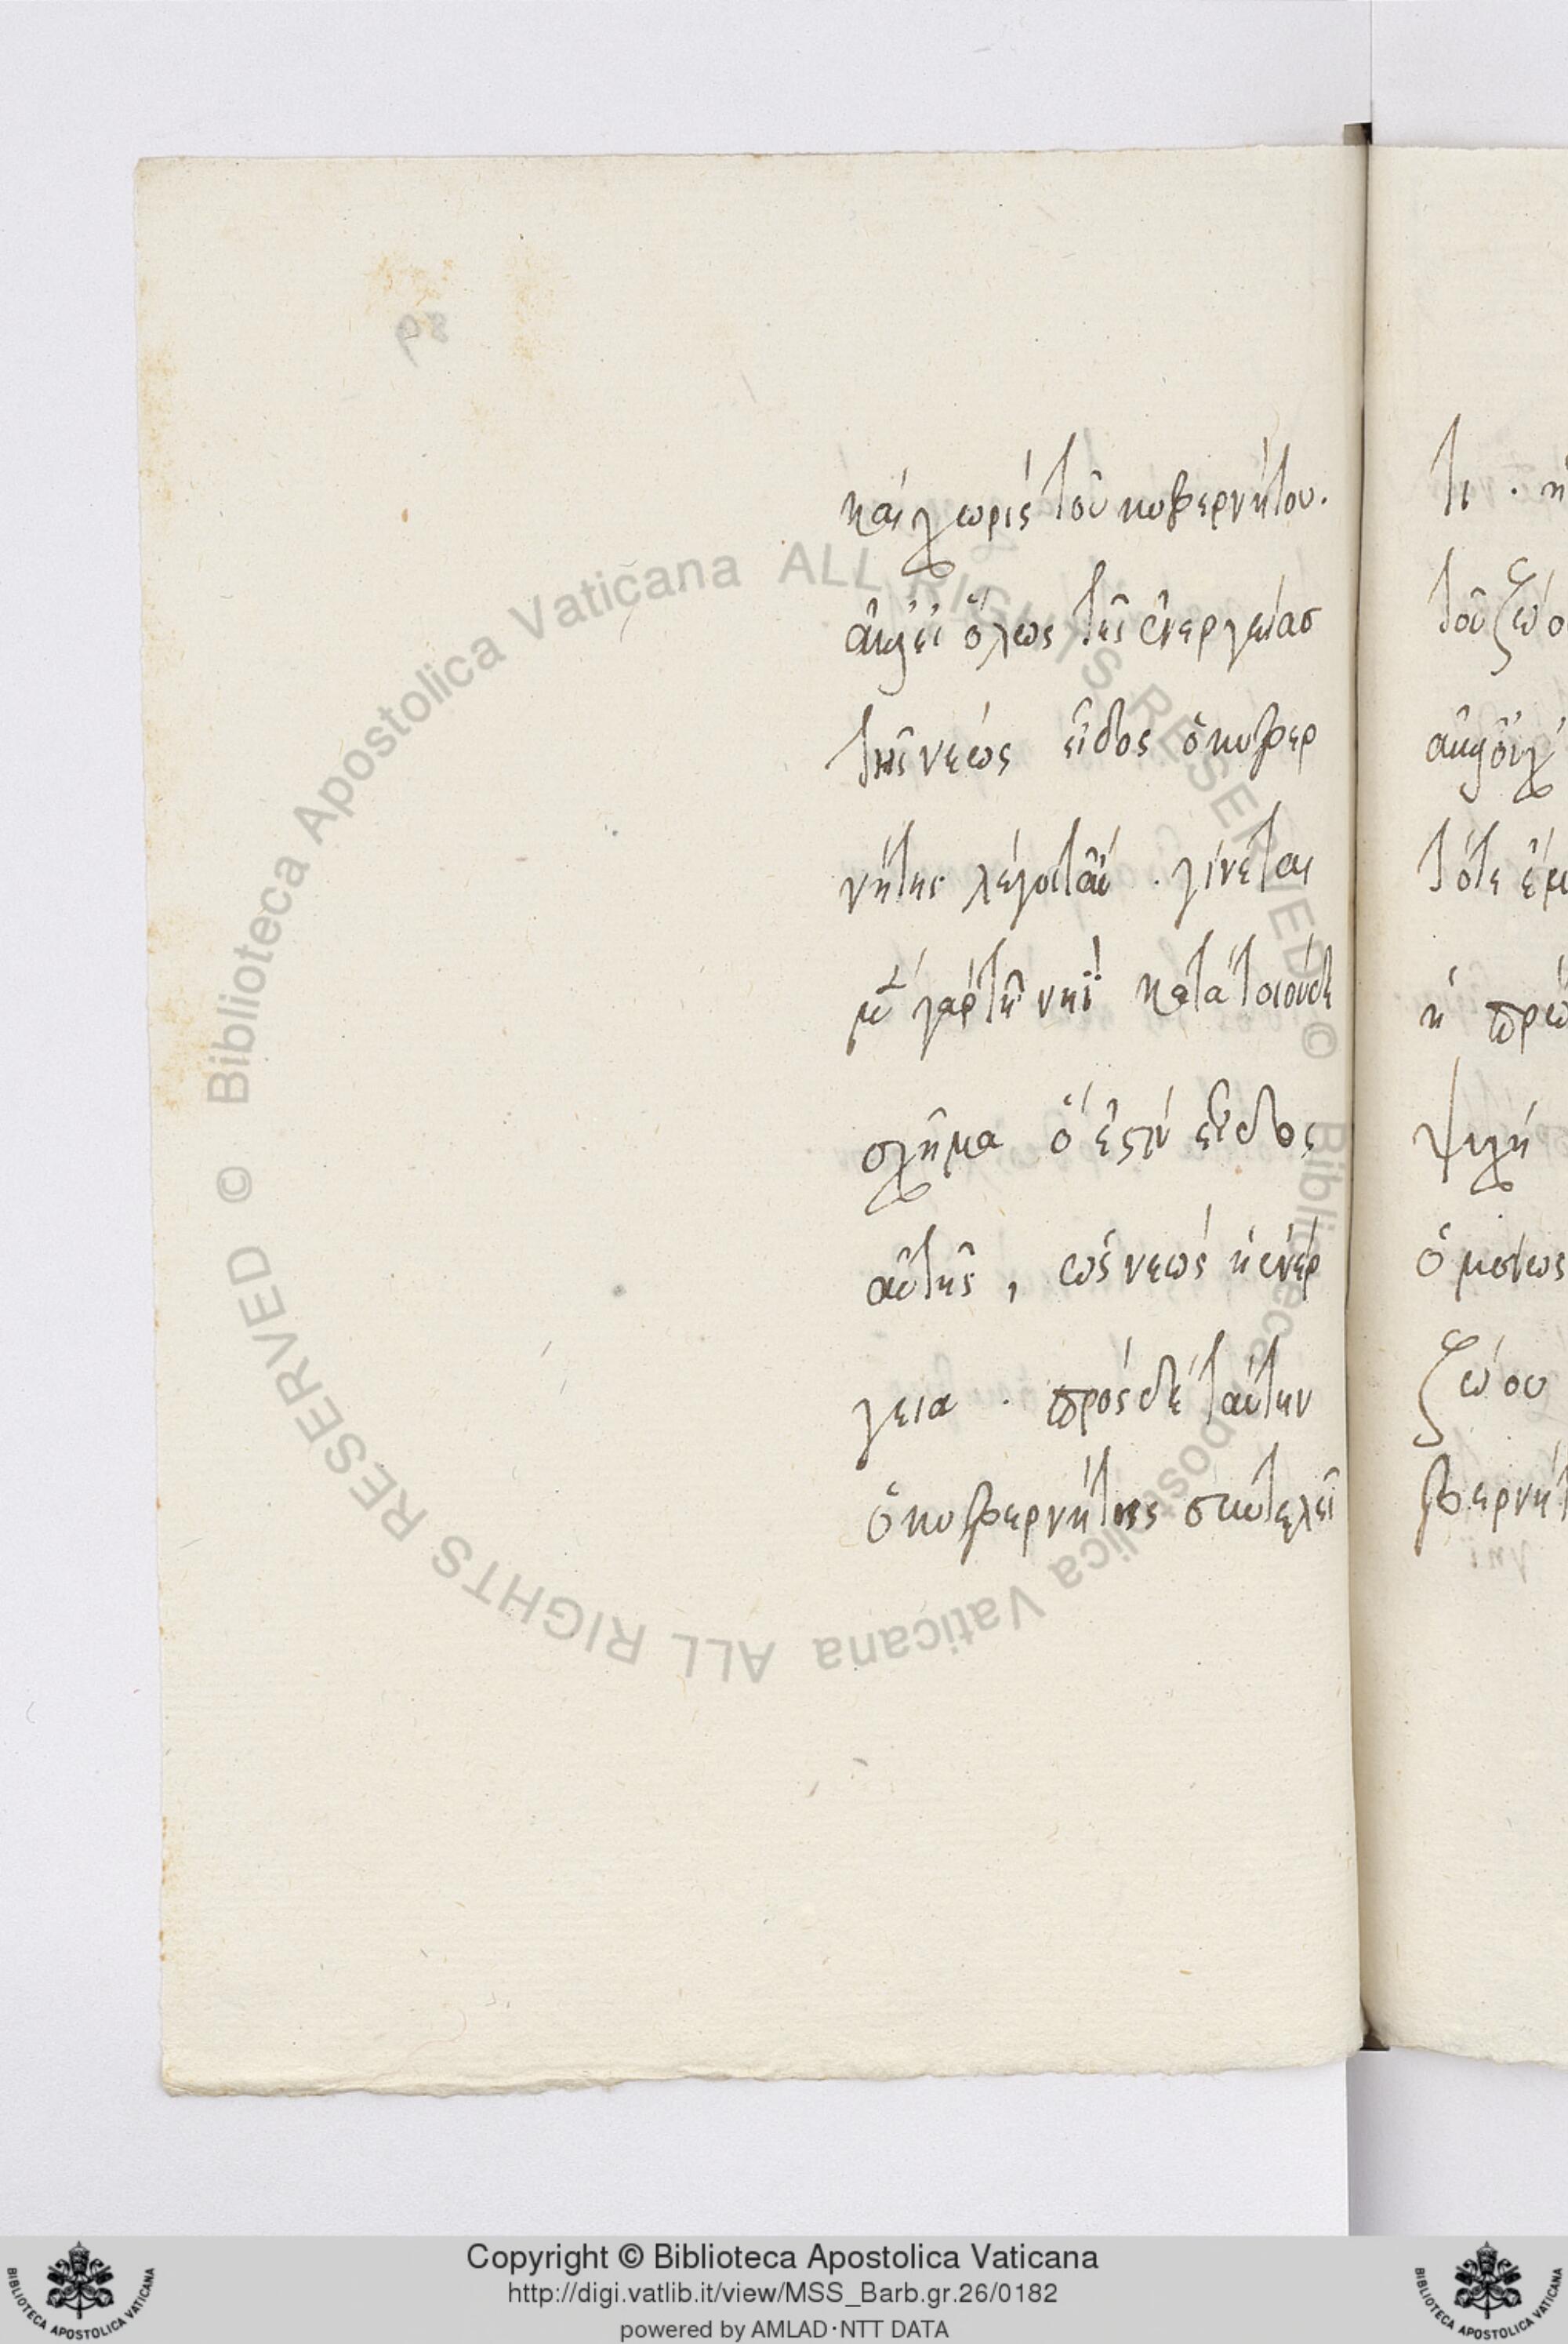 καὶ χωρὶς τοῦ κυβερνήτου.
ὅλως τῆς ἐνεργείασ
τῆς νεὼς εἶδος ὁ κυβερ
νήτης λέγεται . γίνεται
μὲν γὰρ τῆ νηῒ κατὰ τοιόνδε
σχῆμα ὅ ἐστιν εἶδος
αὐτῆς , ὡς νεὼς ἡ ἐνέρ
γεια . πρὸς δὲ ταύτην
ὁ κυβερνήτης συντελεῖ
τι . ἡ
τοῦ ζώο
τότε
ἡ πρώ
ψυχὴ
ὁμοίως
ζώου
βερνήτ
© Biblioteca Apostolica Vaticana ALL RIGHTS RESERVED © Biblioteca Apostolica Vaticana ALL RIGHTS RESERVED
BIBLIOTECA APOSTOLICA VATICANA
Copyright © Biblioteca Apostolica Vaticana
http://digi.vatlib.it/view/MSS_Barb.gr.26/0182
powered by AMLAD·NTT DATA
BIBLIOTECA APOSTOLICA VATICANA